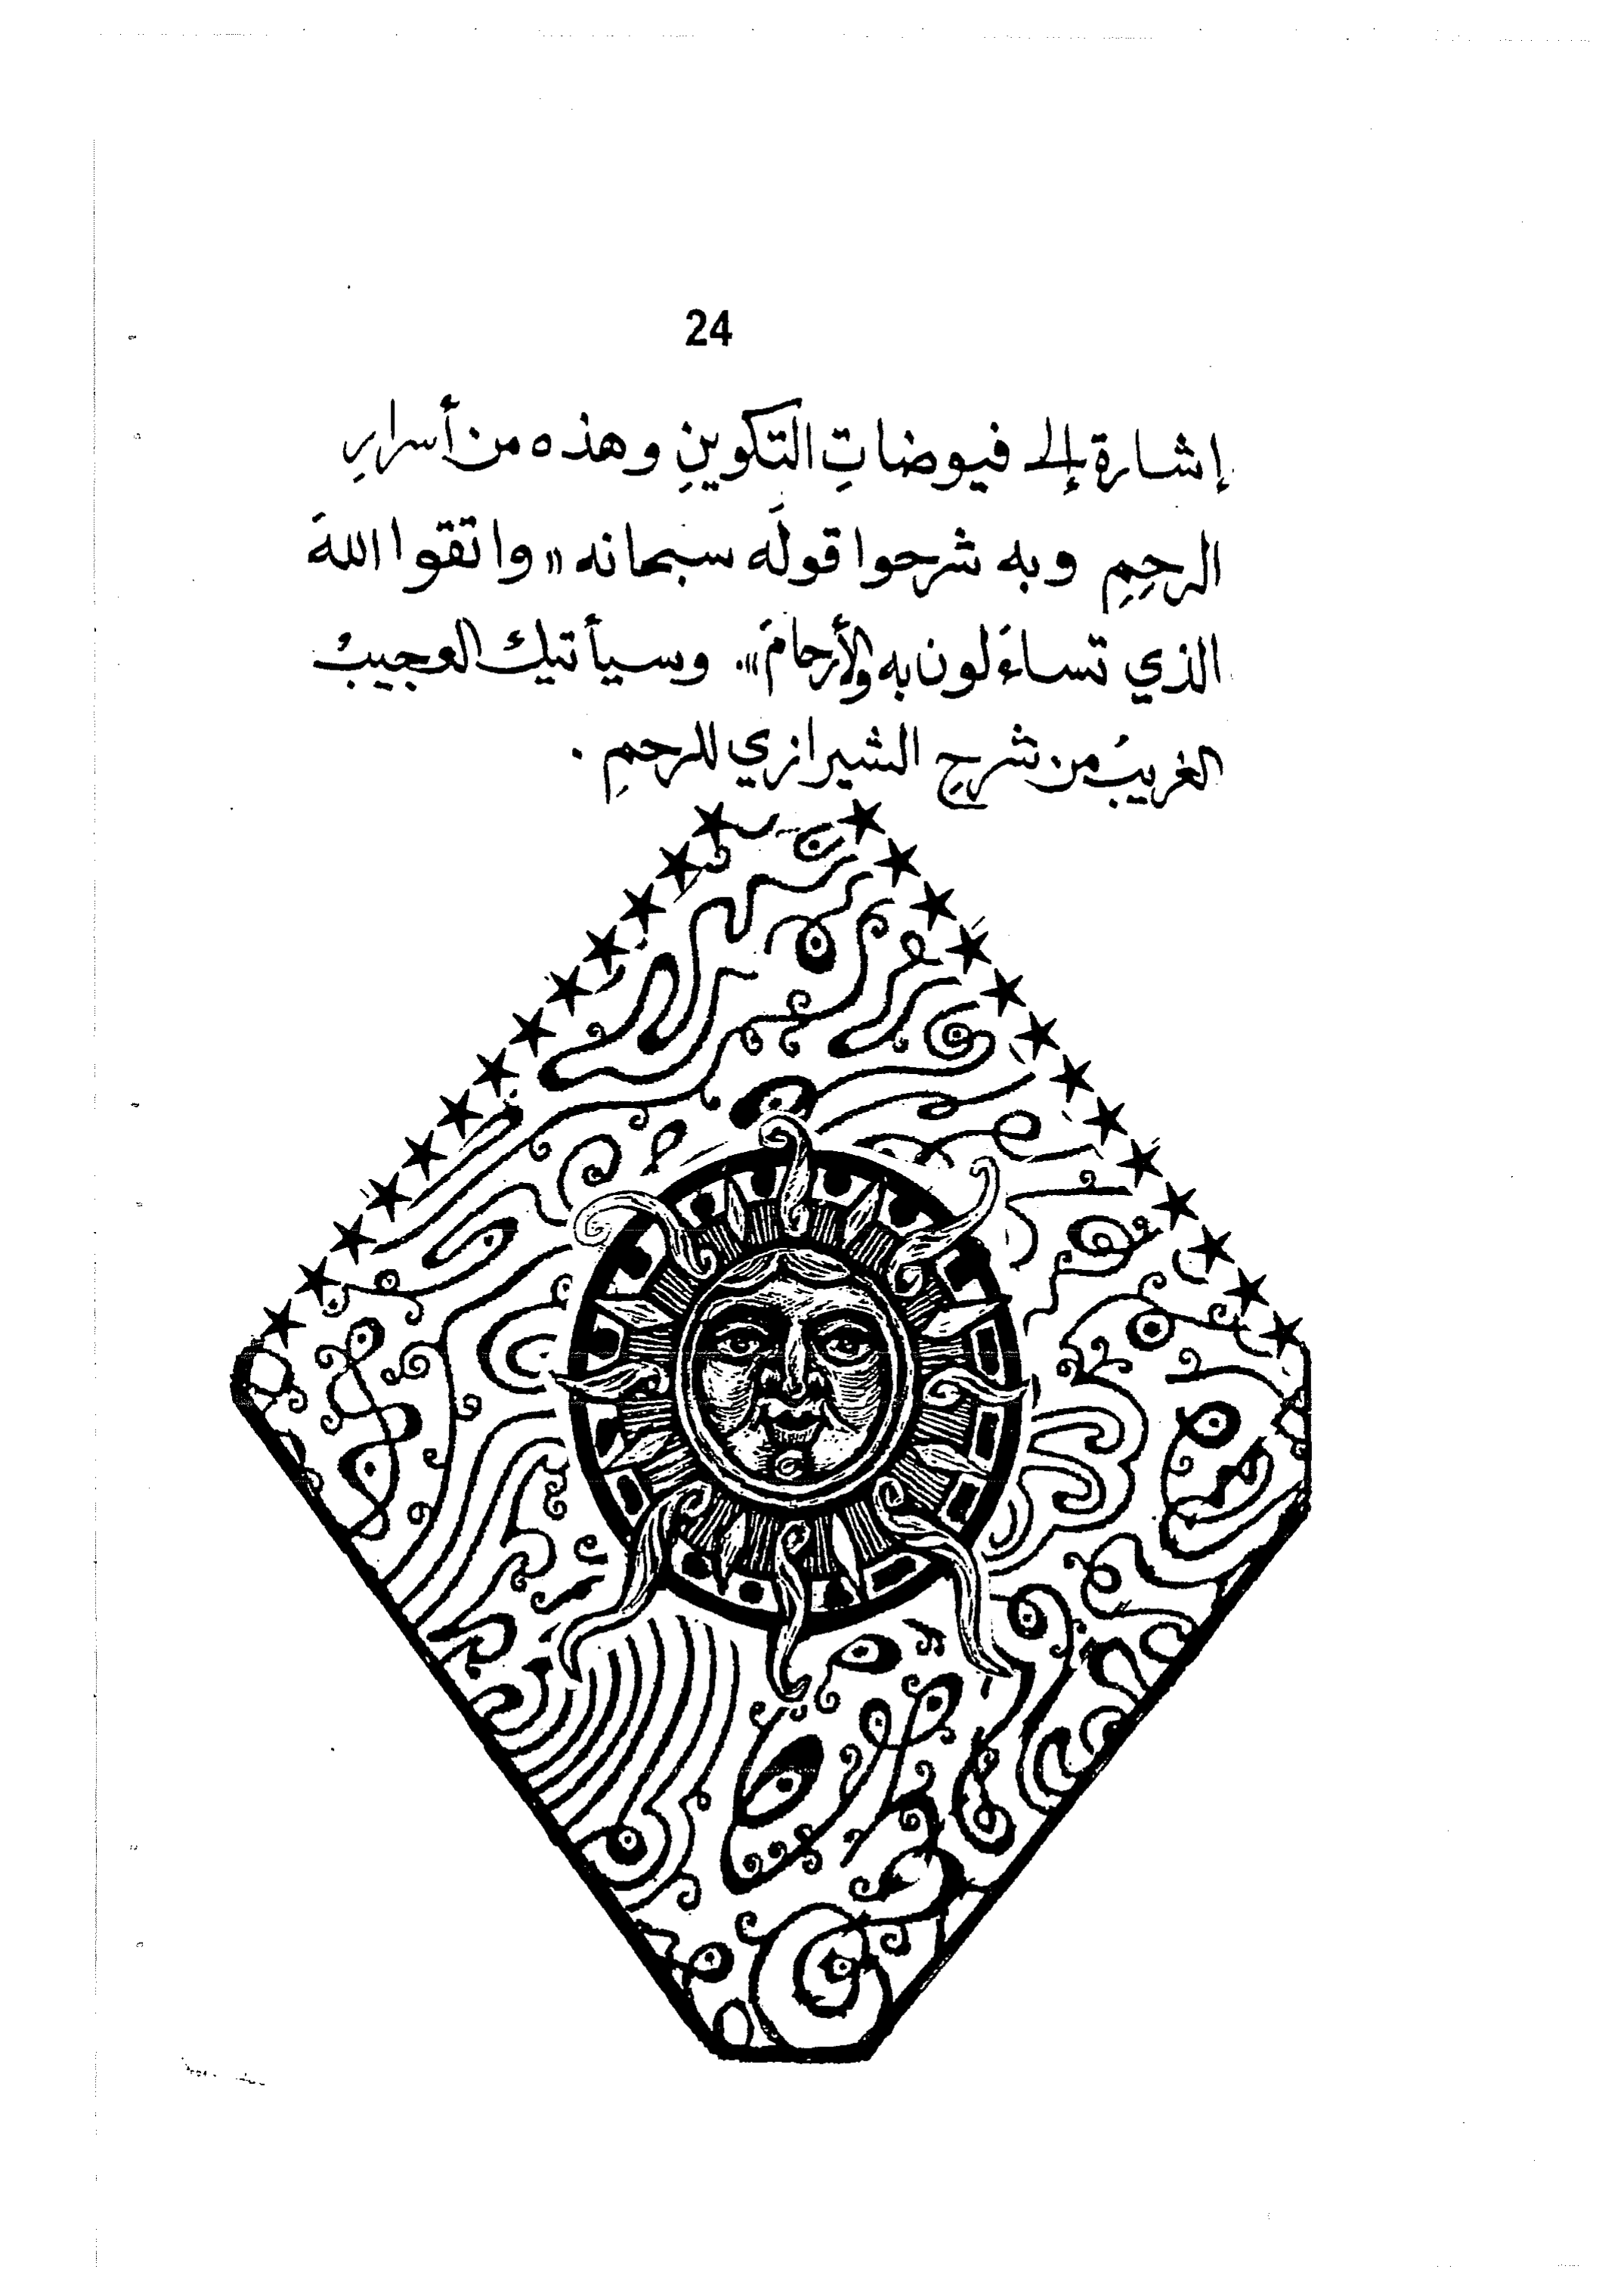 24
إشارة إلى فيوضاتِ التكوينِ وهذه من أسرارِ
الرحِمِ وبه شرحوا قولَه سبحانه «واتقوا اللهَ
الذي تساءَلون به والأرحامَ». وسيأتيك العجيبُ
الغريبُ من شرحِ الشيرازي للرحمِ .